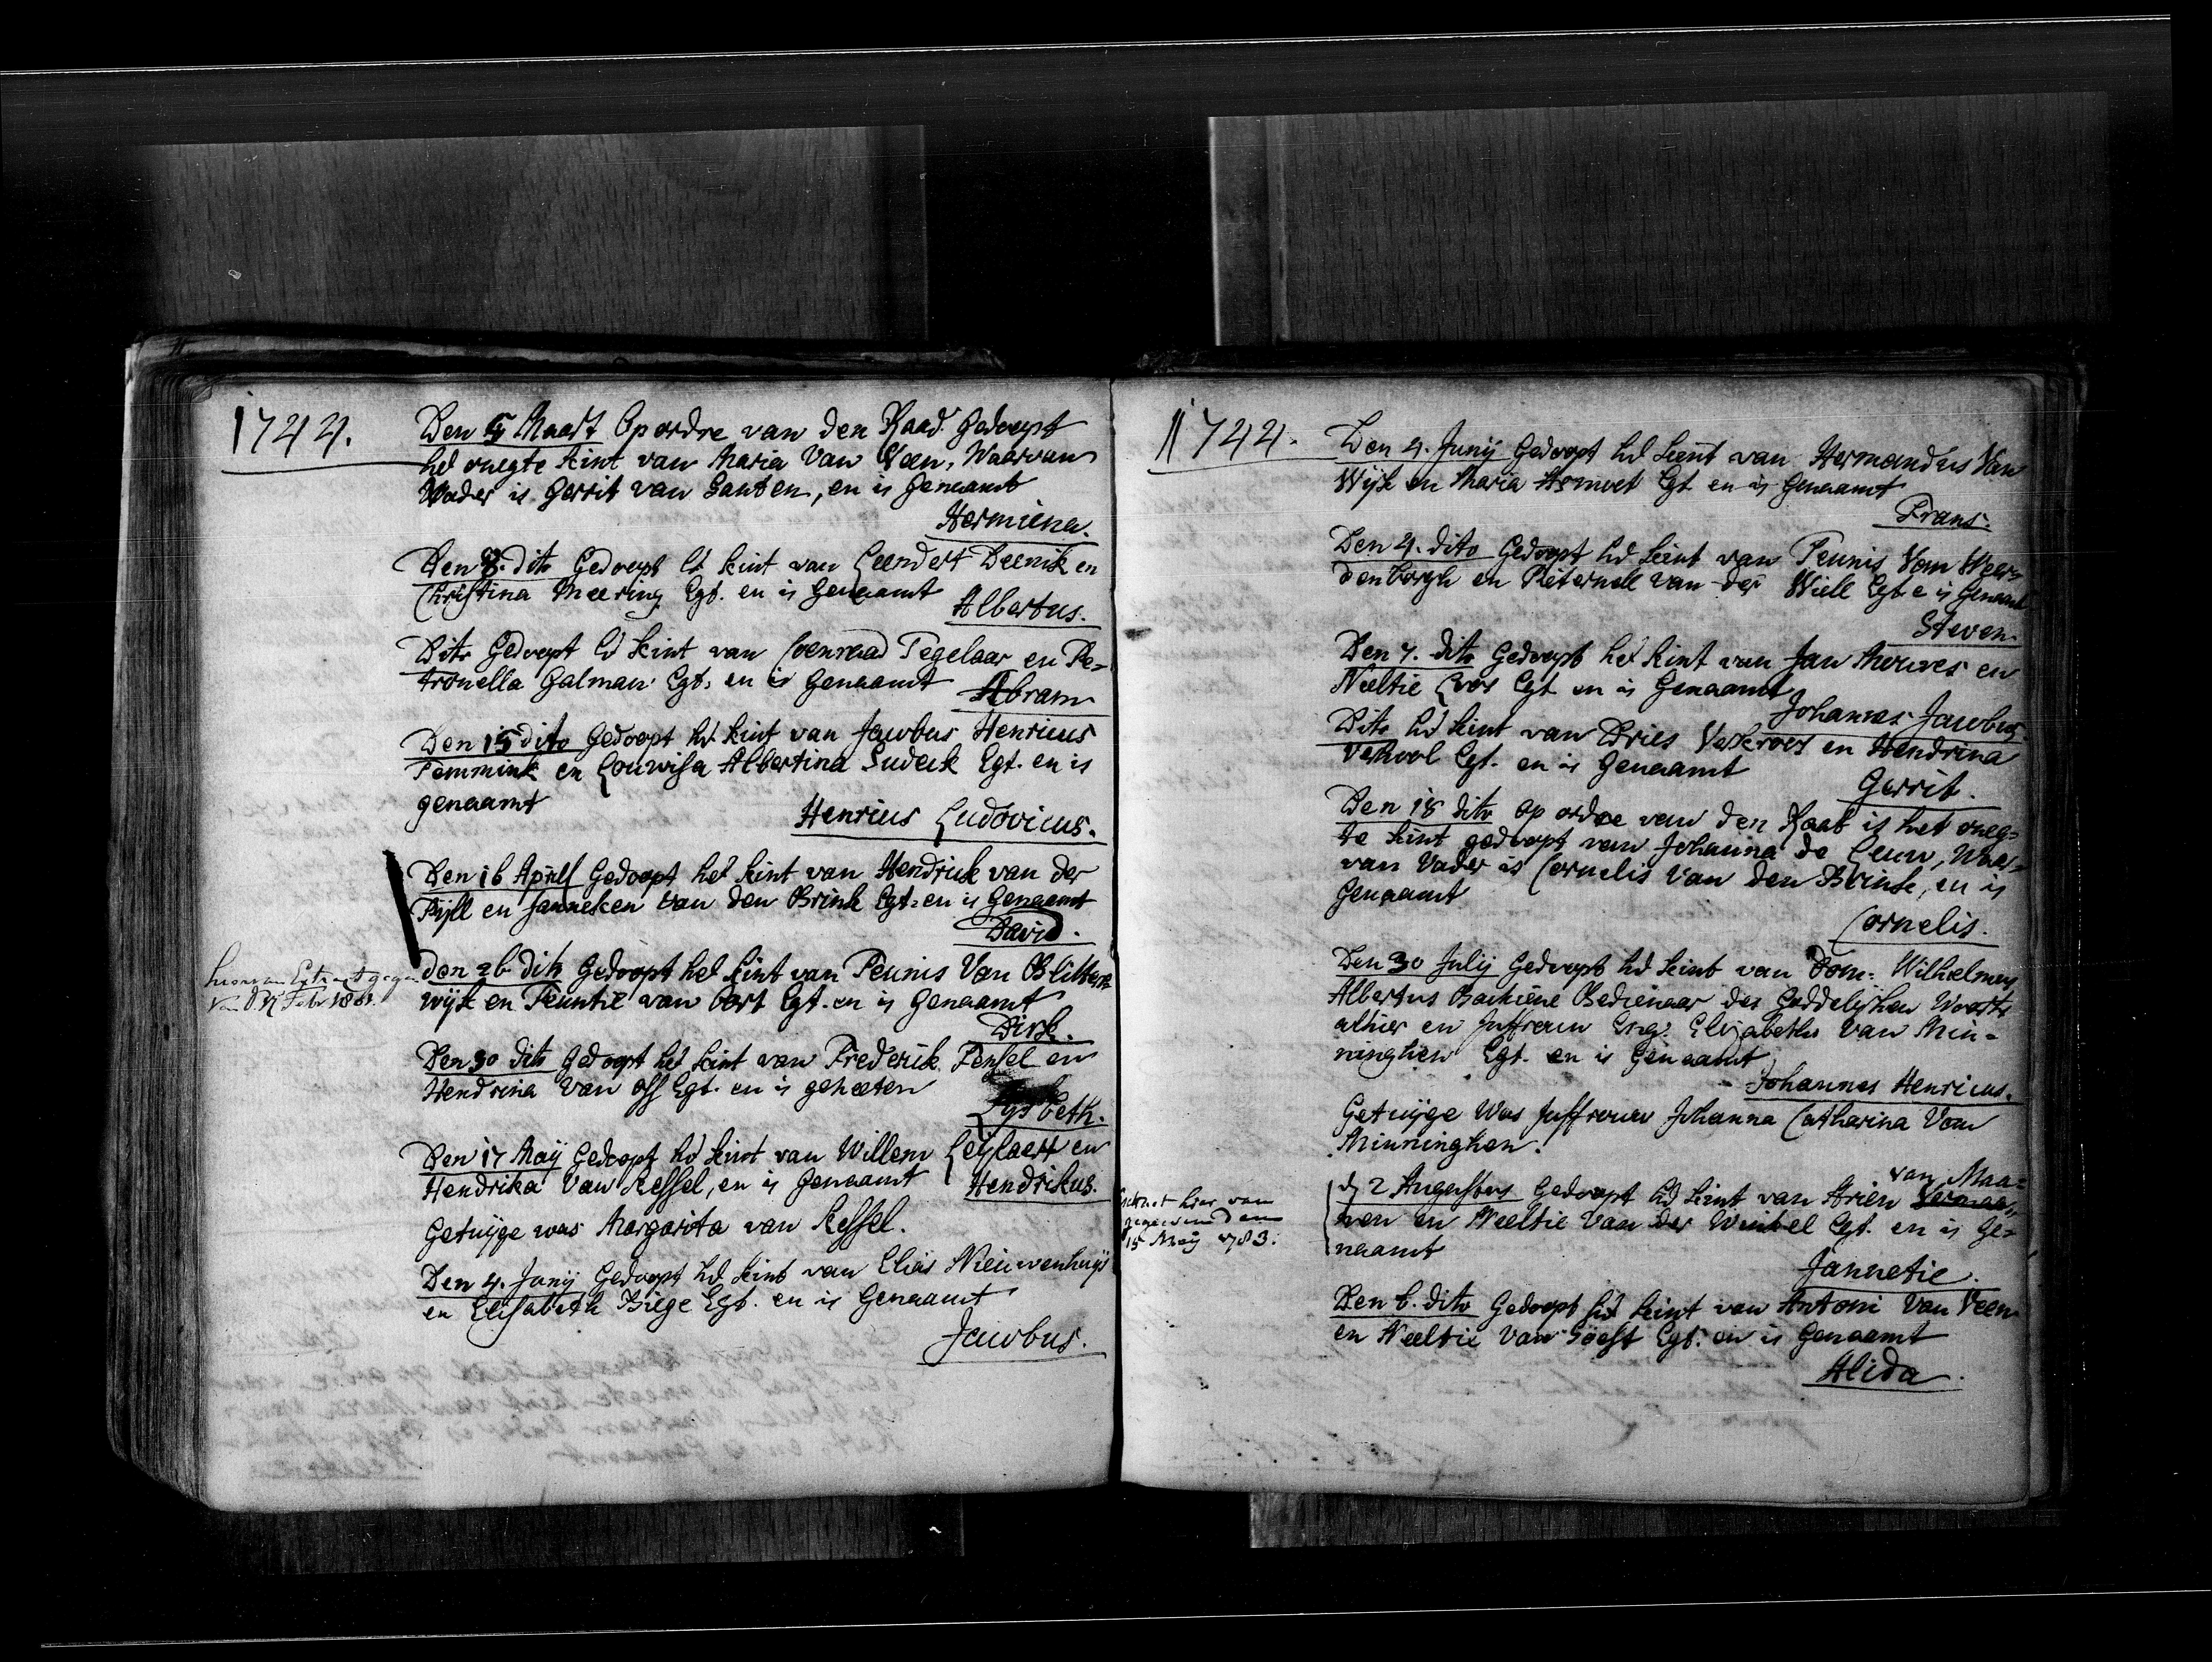 1744.
Den 5 Maart Op ordre van den Raad Gedoopt
het onegte kint van Maria Van Veen, Waarvan
Vader is Gerrit van Santen, en is Genaamt
Hermiena.
Den 8. dito Gedoopt het kint van Leendert Deenik en
Christina Meering Egt. en is Genaamt
Albertus.
Dito Gedoopt het kint van Coenraad Tegelaar en Pe=
tronella Galman Egt. en is Genaamt
Abram
Den 15 dito Gedoopt het kint van Jacobus Henricus
Temmink en Louwisa Albertina Sudeck Egt. en is
genaamt
Henricus Ludovicus.
Den 16 April Gedoopt het kint van Hendrick van der
Pijll en Janneken van den Brink Egt. en is Genaamt
David.
hiervan Extract gegeven
den 26 dito Gedoopt het kint van Teunis Van Blitters
wijk en Teuntie van Oort Egt. en is Genaamt
Dirk.
Den 30 dito Gedoopt het kint van Frederik Pensel en
Hendrina Van Oss Egt. en is geheeten
Lysbeth.
Den 17 Maij Gedoopt het kint van Willem Leijlaert en
Hendrika Van Kessel, en is Genaamt
Hendrikus.
Getuijge was Margarita van Kessel.
Den 4. Junij Gedoopt het kint van Elias Nieuwenhuijs
en Elisabeth Biege Egt. en is Genaamt
Jacobus.
1744.
Den 4. Junij Gedoopt het kint van Hermandus Van
Wijk en Maria Egt en is Genaamt
Frans.
Den 4. dito Gedoopt het kint van Teunis Van Weer=
denborgh en Pieternell van der Wiell Egt e is Genaamt
Steven.
Den 7. dito Gedoopt het kint van Jan Mouwes en
Neeltie Egt en is Genaamt
Johannes Jacobus
Dito het kint van Dries Verkroost en Hendrina
Verhool Egt. en is Genaamt
Gerrit.
Den 18 dito op ordre van den Raad is het oneg=
te kint gedoopt van Johanna de Leuw, Waar=
van Vader is Cornelis Van den Brink, en is
Genaamt
Cornelis.
Den 30 Julij Gedoopt het kint van Dom: Wilhelmus
Albertus Bachiene Bedienaar des Goddelijken Woorts
alhier en Juffrouw Eng: Elizabeths Van Min=
ninghen Egt. en is Genaamt
Johannes Henricus.
Getuijge Was Juffrouw Johanna Catharina Van
Minninghen.
Extract hier van
gegeven den
15 Meij 1783.
van Maa=
d 2 Augustus Gedoopt het kint van Arien
nen en Neeltie Van der Weikel Egt. en is Ge=
naamt
Jannetie.
Den 6. dito Gedoopt het kint van Antoni Van Veen
en Neeltie Van Soest Egt. en is Genaamt
Alida.